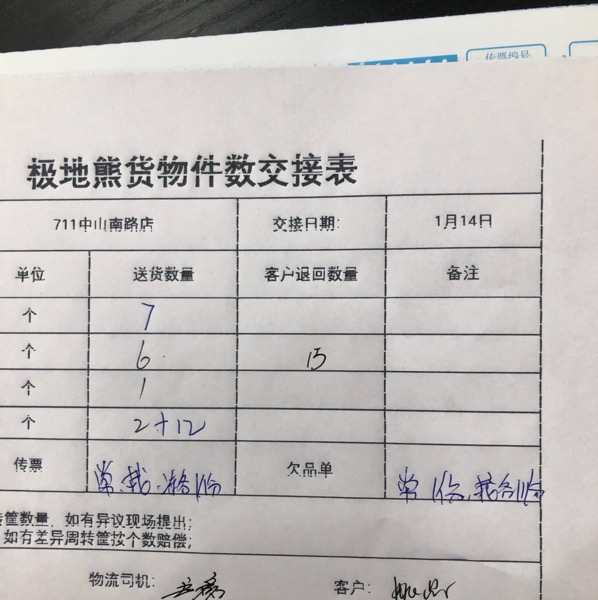 传票编号
极地熊货物件数交接表
711中山南路店 交接日期: 1月14日
单位 送货数量 客户退回数量 备注
个 7
个 6 13
个 1
个 2+12
传票 欠品单
筐数量, 如有异议现场提出;
如有差异周转筐按个数赔偿;
物流司机: 客户: